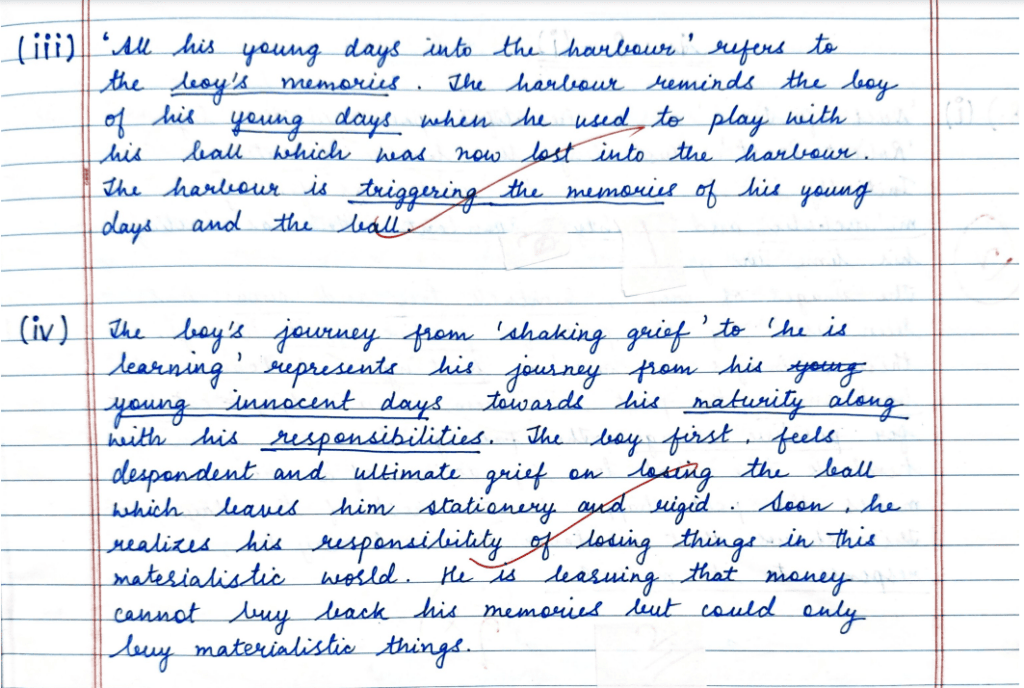 (iii) 'All his young days into the harbour' refers to
the boy's memories. The harbour reminds the boy
of his young days when he used to play with
his ball which was now lost into the harbour.
The harbour is triggering the memories of his young
days and the ball.
(iv) The boy's journey from 'shaking grief' to 'he is
learning' represents his journey from his young
young innocent days towards his maturity along
with his responsibilities. The boy first, feels
despondent and ultimate grief on losing the ball
which leaves him stationery and rigid. Soon, he
realizes his responsibility of losing things in this
materialistic world. He is learning that money
cannot buy back his memories but could only
buy materialistic things.